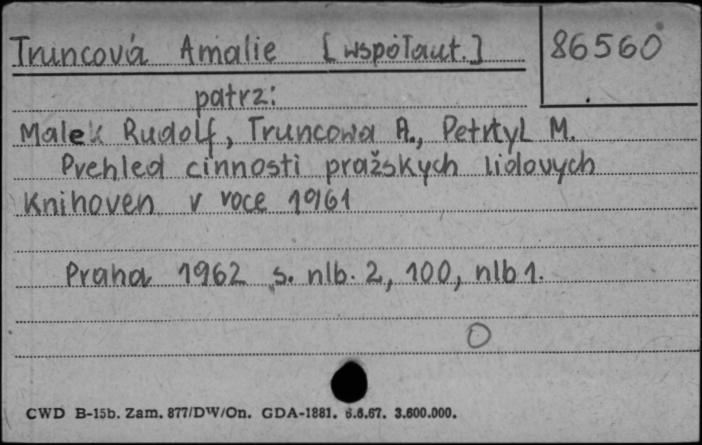 Truncová Amalie [współaut.] 86560
patrz:
Malek Rudolf, Truncowa A., Petrtyl M.
Prehled cinnosti pražskych lidovych
Knihoven v roce 1961
Praha 1962 s. nlb. 2, 100, nlb 1.
O
CWD B-15b. Zam. 877/DW/On. GDA-1881. 6.6.67. 3.600.000.